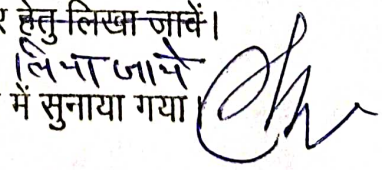 र हेतु लिखा जावें।
लिया जाये
में सुनाया गया।